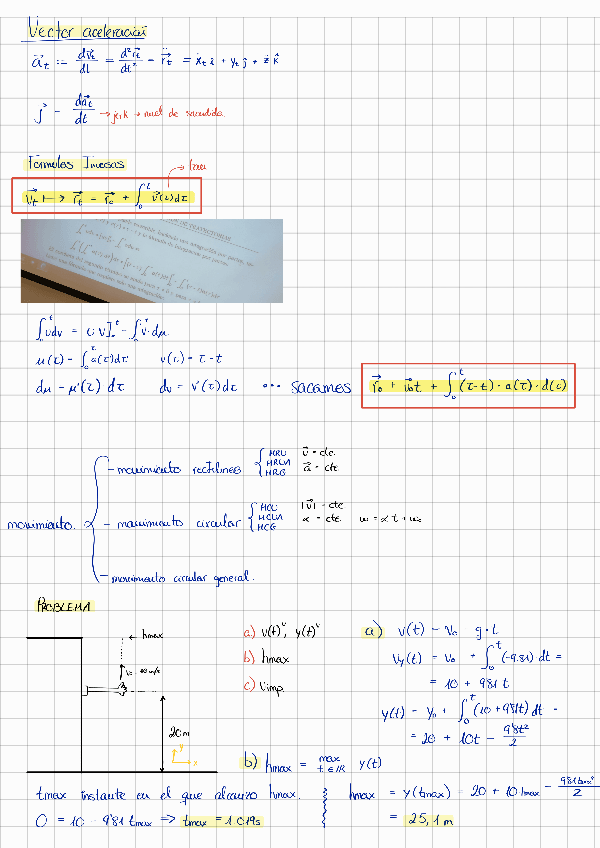 Vector aceleración
a⃗t := dv⃗t/dt = d²r⃗t/dt² = r̈⃗t = ẍt î + ÿt ĵ + z̈ k̂
j⃗ = da⃗t/dt → jerk → nivel de sacudida.
Fórmulas Inversas
v⃗t ↦ r⃗t = r⃗0 + ∫₀ᵗ v⃗(τ)dτ
∫₀ᵗ u dv = u v]₀ᵗ - ∫₀ᵗ v·du
u(τ) = ∫₀^τ a(τ)dτ v(τ) = τ - t
du = u'(τ) dτ dv = v'(τ)dτ ••• sacamos r⃗0 + v⃗0t + ∫₀ᵗ (τ-t)·a(τ)·d(τ)
movimiento
- movimiento rectilíneo
MRU v⃗ = cte.
MRUA a⃗ = cte
MRG
- movimiento circular
MCU |v⃗| = cte
MCUA α = cte. w = αt + w0
MCG
- movimiento circular general.
PROBLEMA
← hmax
V0 = 10 m/s
20m
y
x
a) v(t), y(t)
b) hmax
c) Vimp.
a) v(t) = V0 g·t
Vy(t) = V0 + ∫₀ᵗ (-9.81) dt =
= 10 + 981 t
y(t) = y0 + ∫₀ᵗ (10 + 981t) dt =
= 20 + 10t - 9'8t²/2
b) hmax = max t∈ℝ y(t)
tmax instante en el que alcanzo hmax.
0 = 10 - 9'81 tmax => tmax = 1.019s
hmax = y(tmax) = 20 + 10 tmax - 9'81 tmax²/2
= 25,1 m